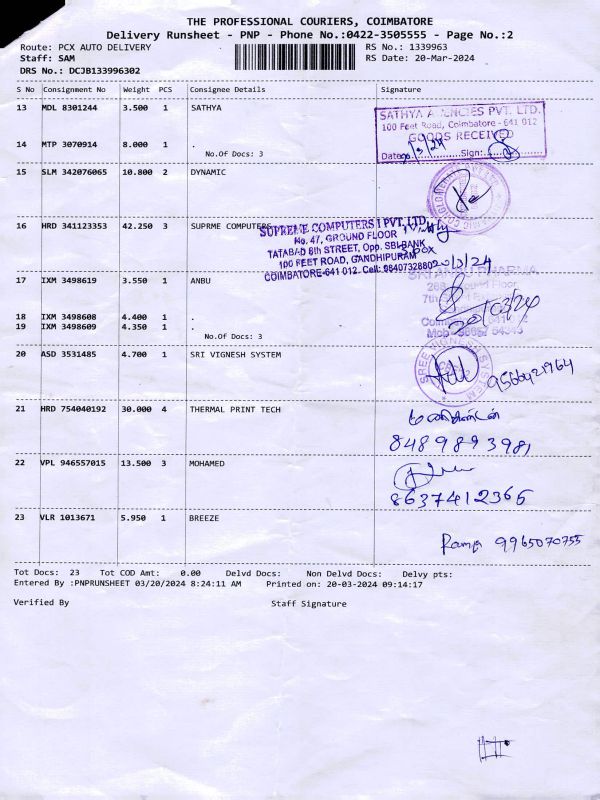 THE PROFESSIONAL COURIERS, COIMBATORE
Delivery Runsheet - PNP - Phone No.:0422-3505555 - Page No.:2
Route: PCX AUTO DELIVERY
RS No.: 1339963
Staff: SAM
RS Date: 20-Mar-2024
DRS No.: DCJB133996302
S No Consignment No Weight PCS Consignee Details Signature
13 MDL 8301244 3.500 1 SATHYA
SATHYA AGENCIES PVT. LTD.
100 Feet Road, Coimbatore - 641 012
GOODS RECEIVED
Date Sign:
14 MTP 3070914 8.000 1 .
No.Of Docs: 3
15 SLM 342076065 10.800 2 DYNAMIC
16 HRD 341123353 42.250 3 SUPRME COMPUTERS
SUPREME COMPUTERS I PVT. LTD.
No. 47, GROUND FLOOR
TATABAD 8th STREET, Opp. SBI BANK
100 FEET ROAD, GANDHIPURAM
COIMBATORE-641 012. Cell: 0840732880
20/3/24
17 IXM 3498619 3.550 1 ANBU
20/03/24
18 IXM 3498608 4.400 1 .
19 IXM 3498609 4.350 1 .
No.Of Docs: 3
20 ASD 3531485 4.700 1 SRI VIGNESH SYSTEM
SREE VIGNESH SYSTEM
21 HRD 754040192 30.000 4 THERMAL PRINT TECH
8489893981
22 VPL 946557015 13.500 3 MOHAMED
8637412366
23 VLR 1013671 5.950 1 BREEZE
9965070755
Tot Docs: 23 Tot COD Amt: 0.00 Delvd Docs: Non Delvd Docs: Delvy pts:
Entered By :PNPRUNSHEET 03/20/2024 8:24:11 AM Printed on: 20-03-2024 09:14:17
Verified By Staff Signature